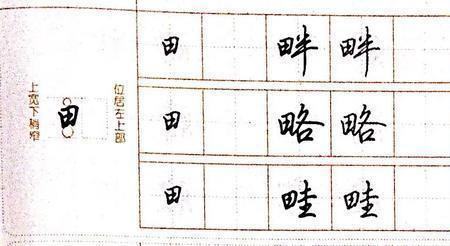 上宽下稍窄
田
位居左上部
田 畔 畔
田 略 略
田 畦 畦